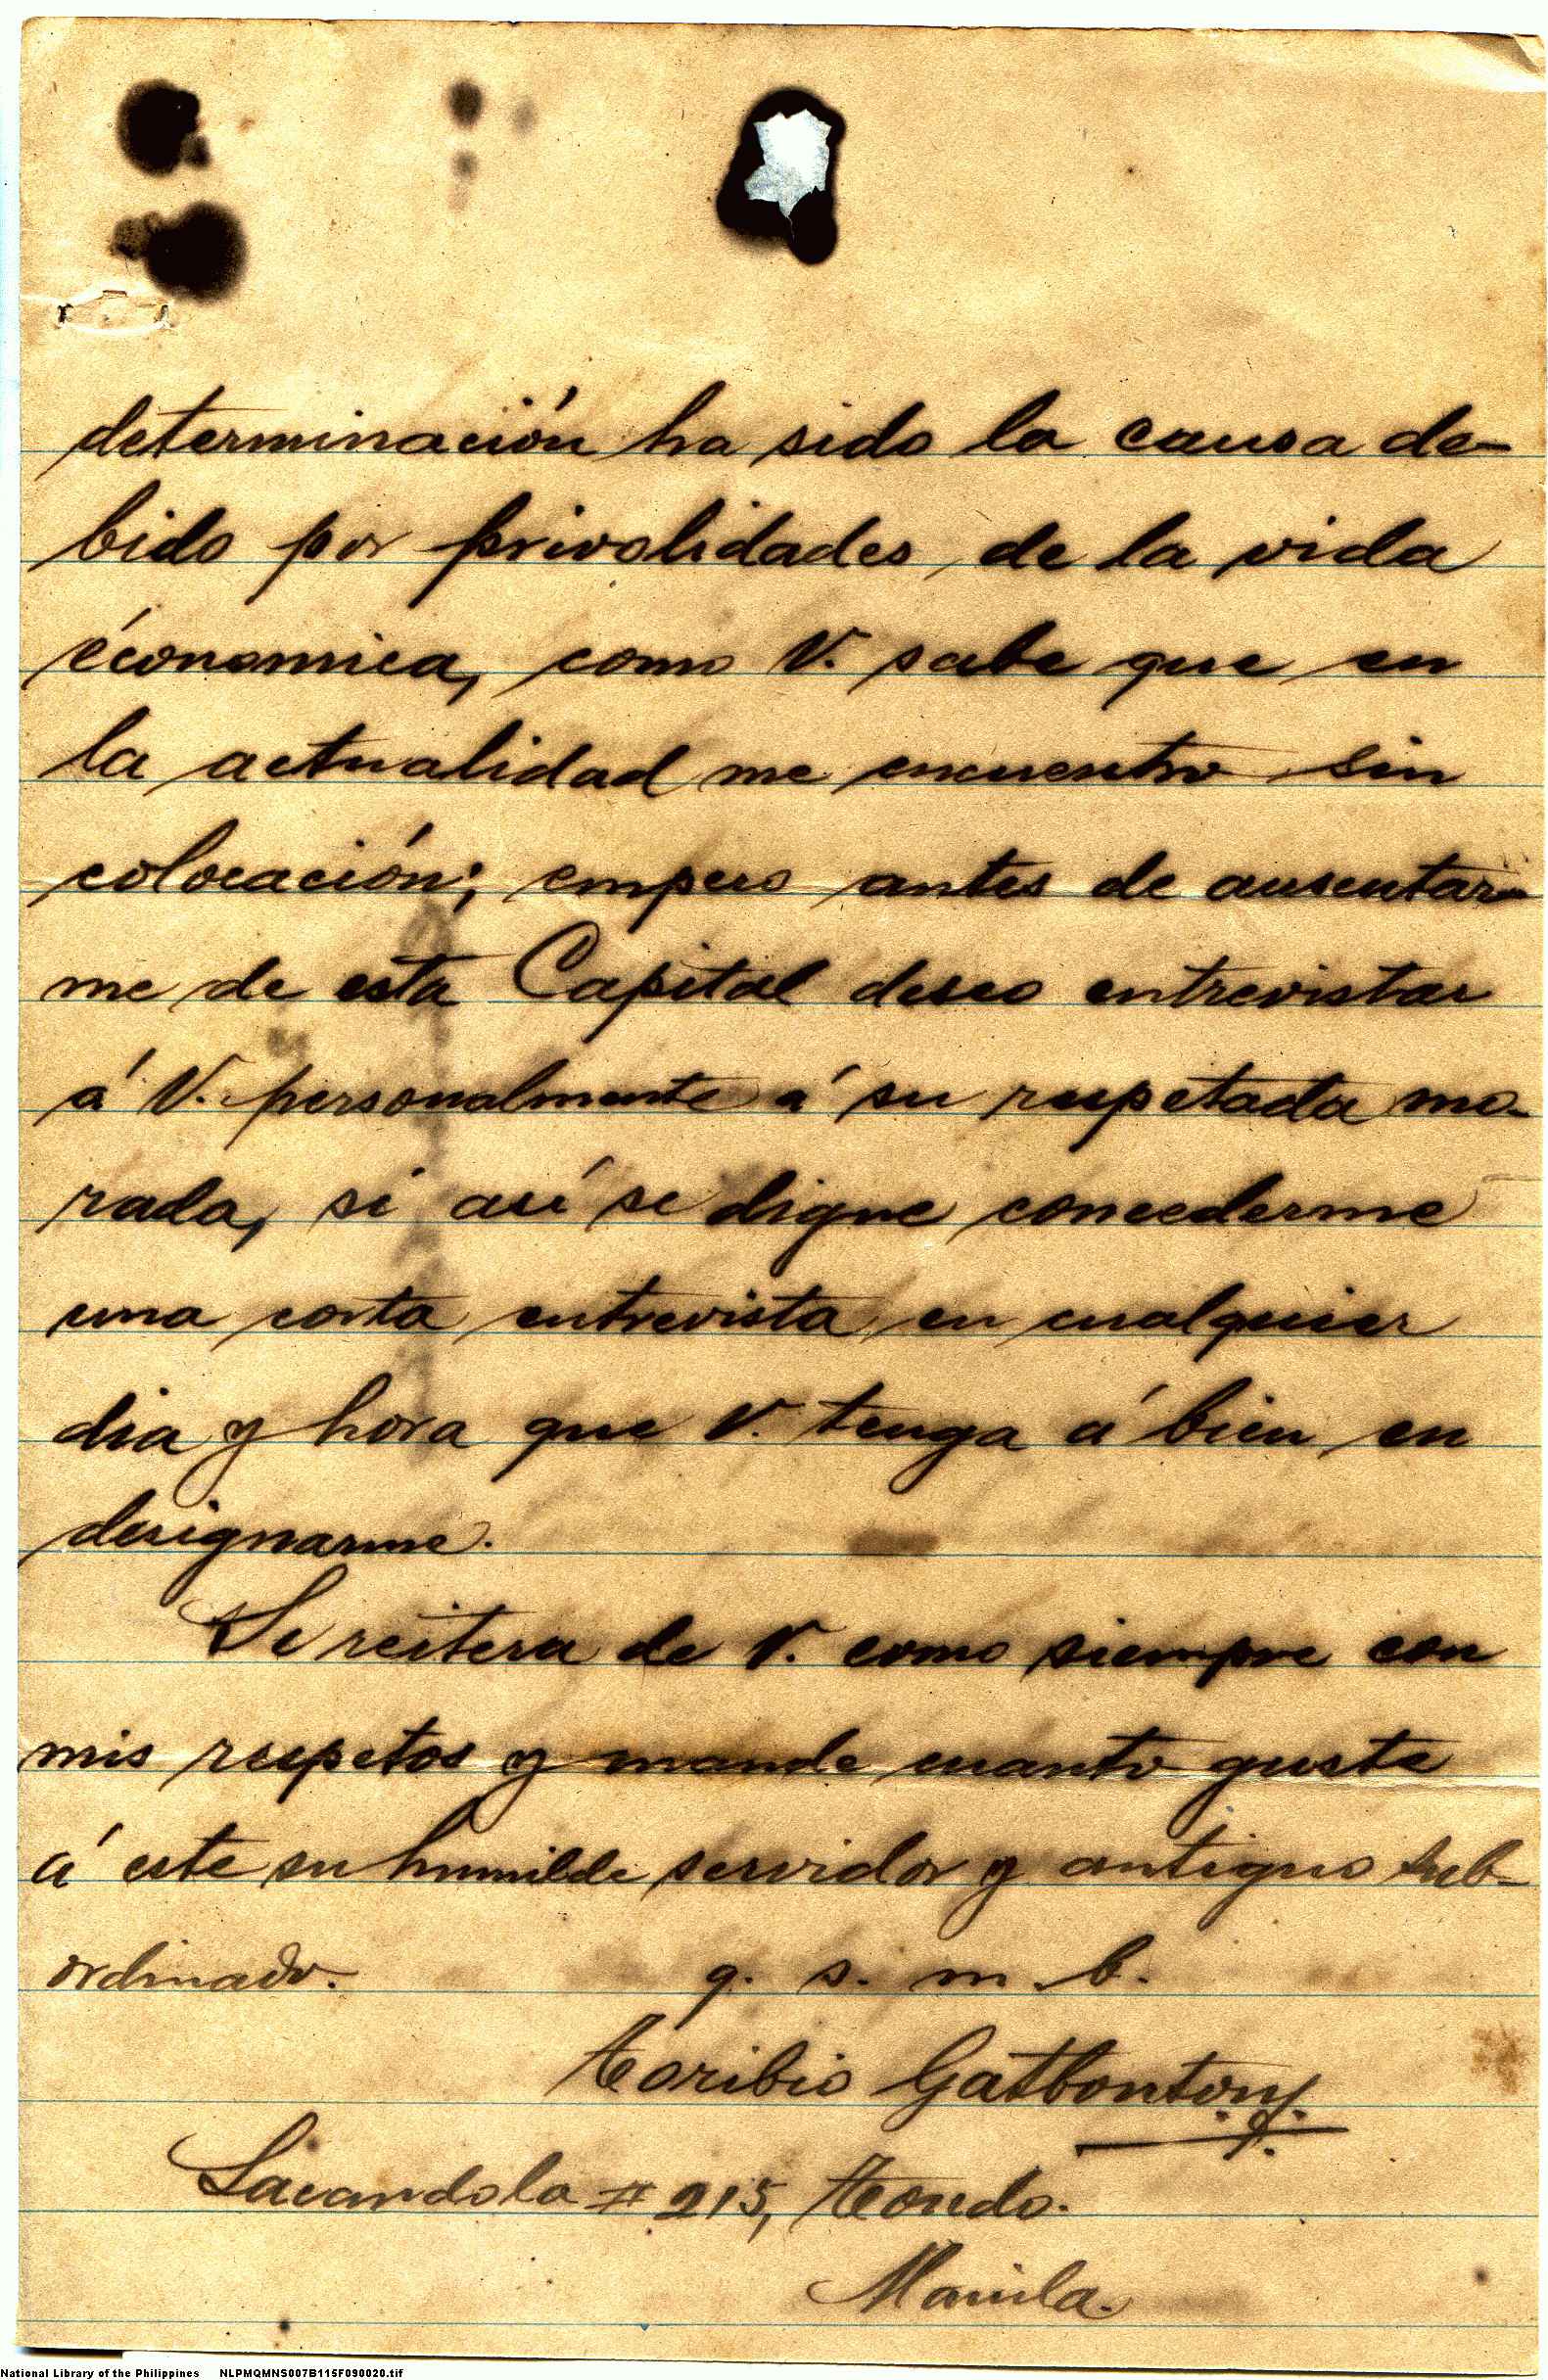 determinación ha sido la causa de-
bido por privalidades, de la vida
économica, como V. sabe que en
la actualidad me encuentro sin
colocación; empero antes de ausentar-
me de esta Capital deseo entrevistar
á V. personalmente á su respetada mo-
rada, si así se digne concederme
una corta entrevista, en cualquier
dia y hora que V. tenga á bien en
designarme.
Se reitera de V. como siempre con
mis respetos y mande cuanto guste
á este su humilde servidor y antiguo sub-
ordinado. q. s. m. b.
Toribio Gatbonton
Lacandola # 215, Tondo.
Manila.
National Library of the Philippines NLPMQMNS007B115F090020.tif